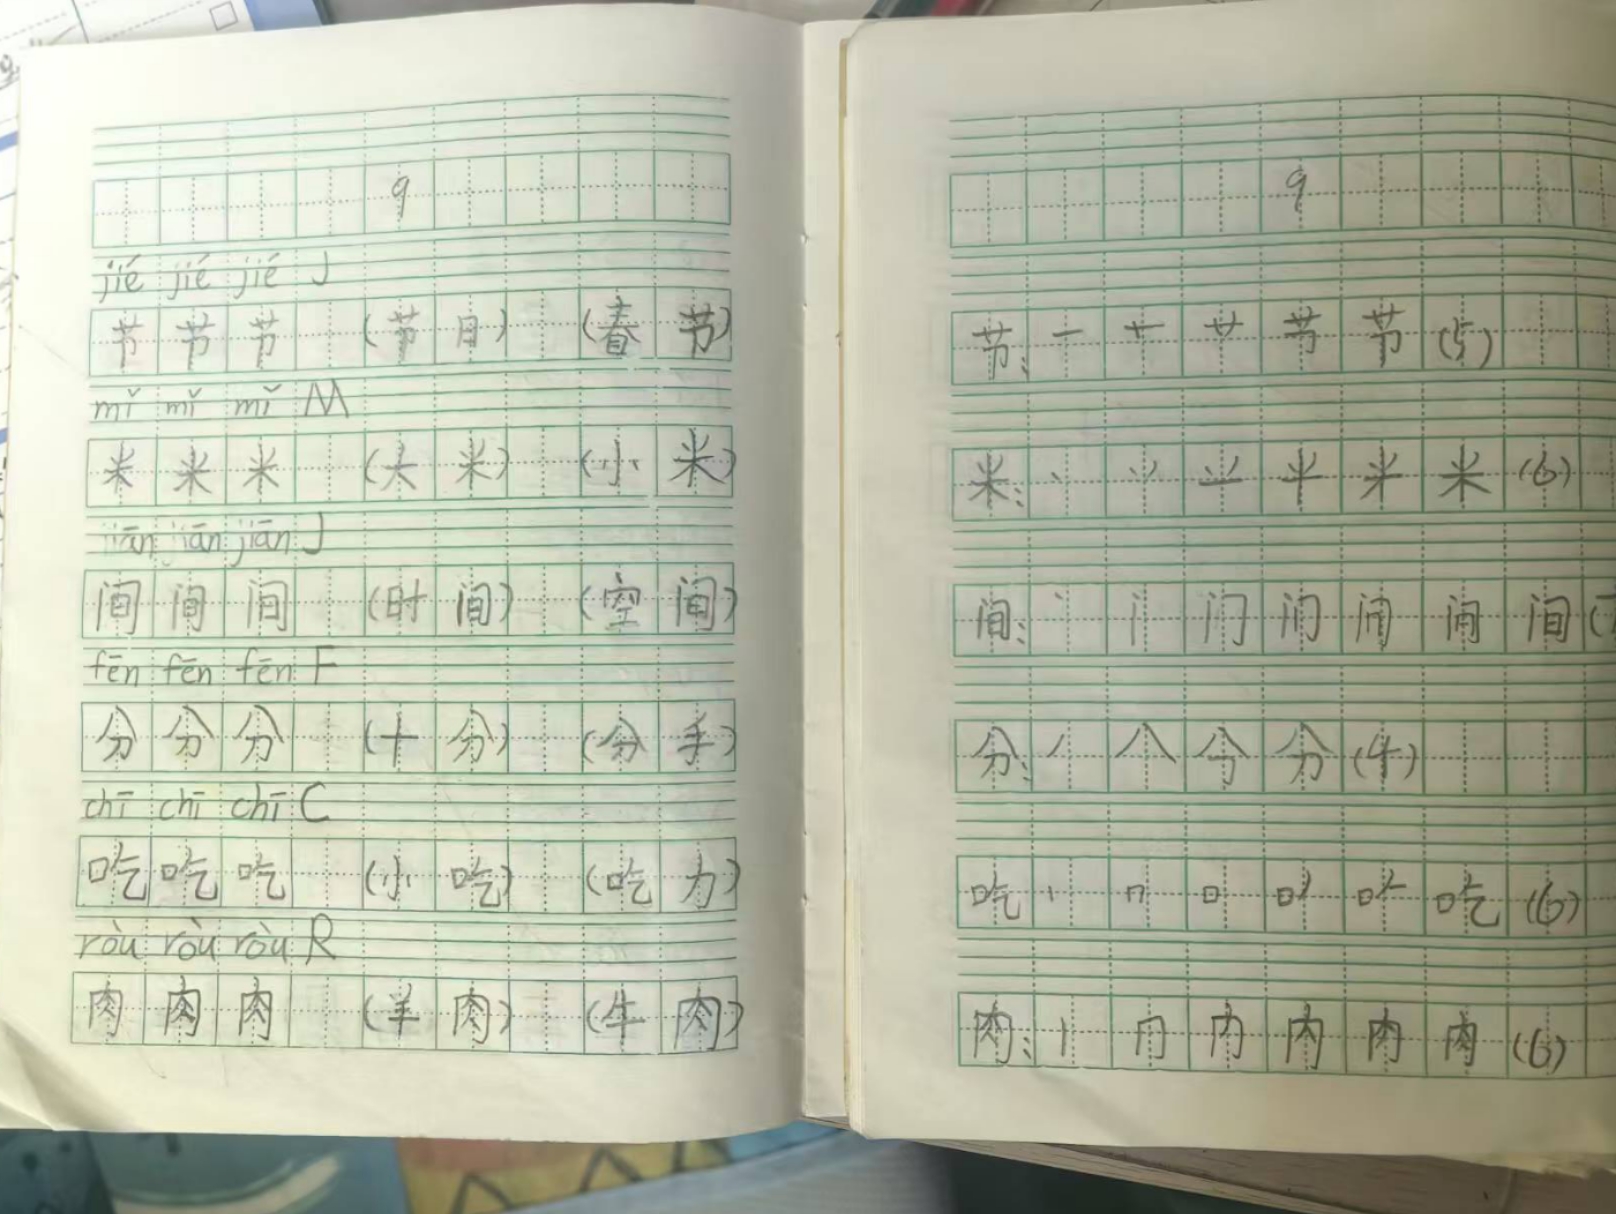 9
jié jié jié J
节 节 节 (节 目) (春 节)
mǐ mǐ mǐ M
米 米 米 (大 米) (小 米)
jiān jiān jiān J
间 间 间 (时 间) (空 间)
fēn fēn fēn F
分 分 分 (十 分) (分 手)
chī chī chī C
吃 吃 吃 (小 吃) (吃 力)
ròu ròu ròu R
肉 肉 肉 (羊 肉) (牛 肉)
9
节: 一 十 艹 节 (5)
米: 丶 丷 米 (6)
间: 丶 门 间
分: 丿 八 分 (4)
吃 丨 口 吃 (6)
肉: 丨 冂 内 肉 (6)